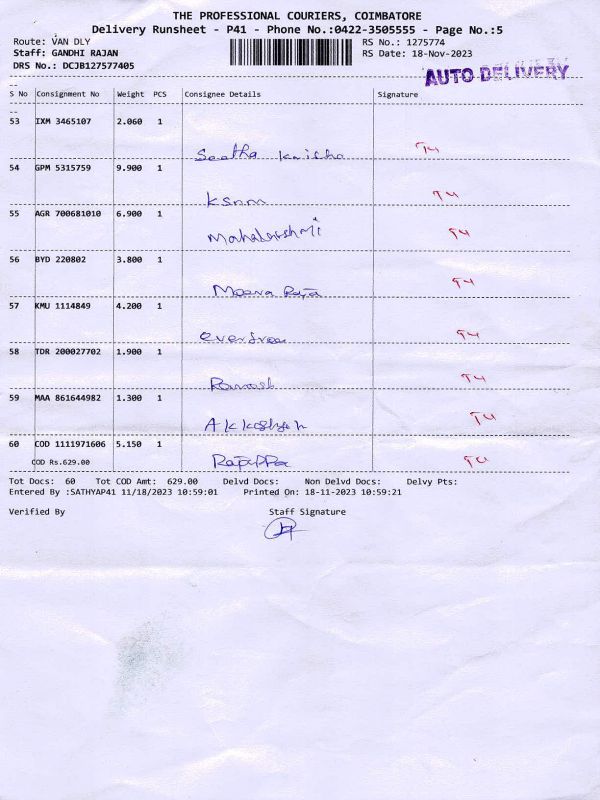 THE PROFESSIONAL COURIERS, COIMBATORE
Delivery Runsheet - P41 - Phone No.:0422-3505555 - Page No.:5
Route: VAN DLY
RS No.: 1275774
Staff: GANDHI RAJAN
RS Date: 18-Nov-2023
DRS No.: DCJB127577405
AUTO DELIVERY
S No Consignment No Weight PCS Consignee Details Signature
53 IXM 3465107 2.060 1
Seetha
54 GPM 5315759 9.900 1
Ksnm
55 AGR 700681010 6.900 1
Mahalakshmi
56 BYD 220802 3.800 1
Meena Raja
57 KMU 1114849 4.200 1
58 TDR 200027702 1.900 1
Ramesh
59 MAA 861644982 1.300 1
60 COD 1111971606 5.150 1
COD Rs.629.00
Tot Docs: 60 Tot COD Amt: 629.00 Delvd Docs: Non Delvd Docs: Delvy Pts:
Entered By :SATHYAP41 11/18/2023 10:59:01 Printed On: 18-11-2023 10:59:21
Verified By Staff Signature